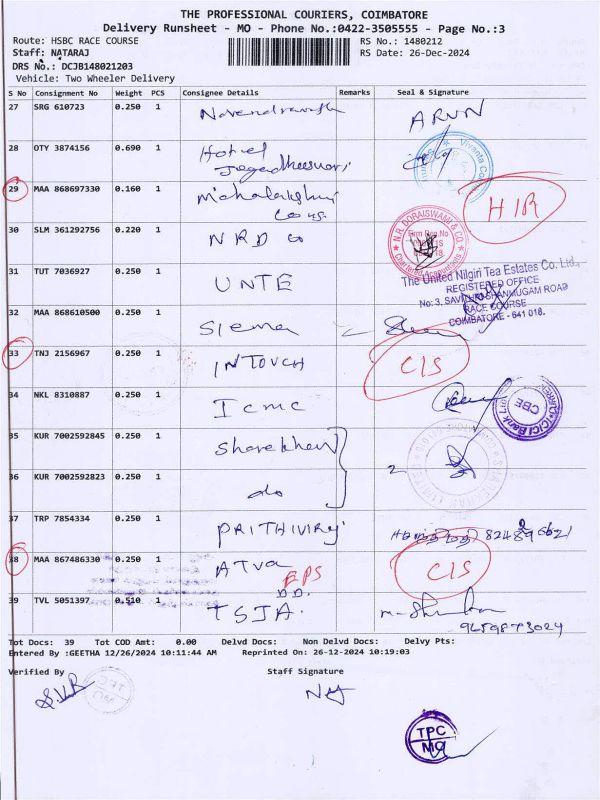 THE PROFESSIONAL COURIERS, COIMBATORE
Delivery Runsheet - MO - Phone No.:0422-3505555 - Page No.:3
Route: HSBC RACE COURSE
RS No.: 1480212
Staff: NATARAJ
RS Date: 26-Dec-2024
DRS No.: DCJB148021203
Vehicle: Two Wheeler Delivery
S No Consignment No Weight PCS Consignee Details Remarks Seal & Signature
27 SRG 610723 0.250 1 ARUN
28 OTY 3874156 0.690 1 Hotel
Jegadheeswari
29 MAA 868697330 0.160 1 Mahalakshmi HIR
30 SLM 361292756 0.220 1 NRD
N.R. DORAISWAMI & CO.
Firm Reg.No
Chartered Accountants
31 TUT 7036927 0.250 1 UNTE
The United Nilgiri Tea Estates Co. Ltd.,
REGISTERED OFFICE
No: 3, SAVITHRI SHANMUGAM ROAD
RACE COURSE
COIMBATORE - 641 018.
32 MAA 868610500 0.250 1 Siema
33 TNJ 2156967 0.250 1 INTOUCH CIS
34 NKL 8310887 0.250 1 ICMC
ICICI Bank Ltd
CBE
35 KUR 7002592845 0.250 1 Sharekhan 2
36 KUR 7002592823 0.250 1 do
37 TRP 7854334 0.250 1 PRITHIVIRJ
38 MAA 867486330 0.250 1 ATVA CIS
EPS
D.D.
39 TVL 5051397 0.510 1 TSIA.
9659873024
Tot Docs: 39 Tot COD Amt: 0.00 Delvd Docs: Non Delvd Docs: Delvy Pts:
Entered By :GEETHA 12/26/2024 10:11:44 AM Reprinted On: 26-12-2024 10:19:03
Verified By Staff Signature
S.V.R
TPC
MO